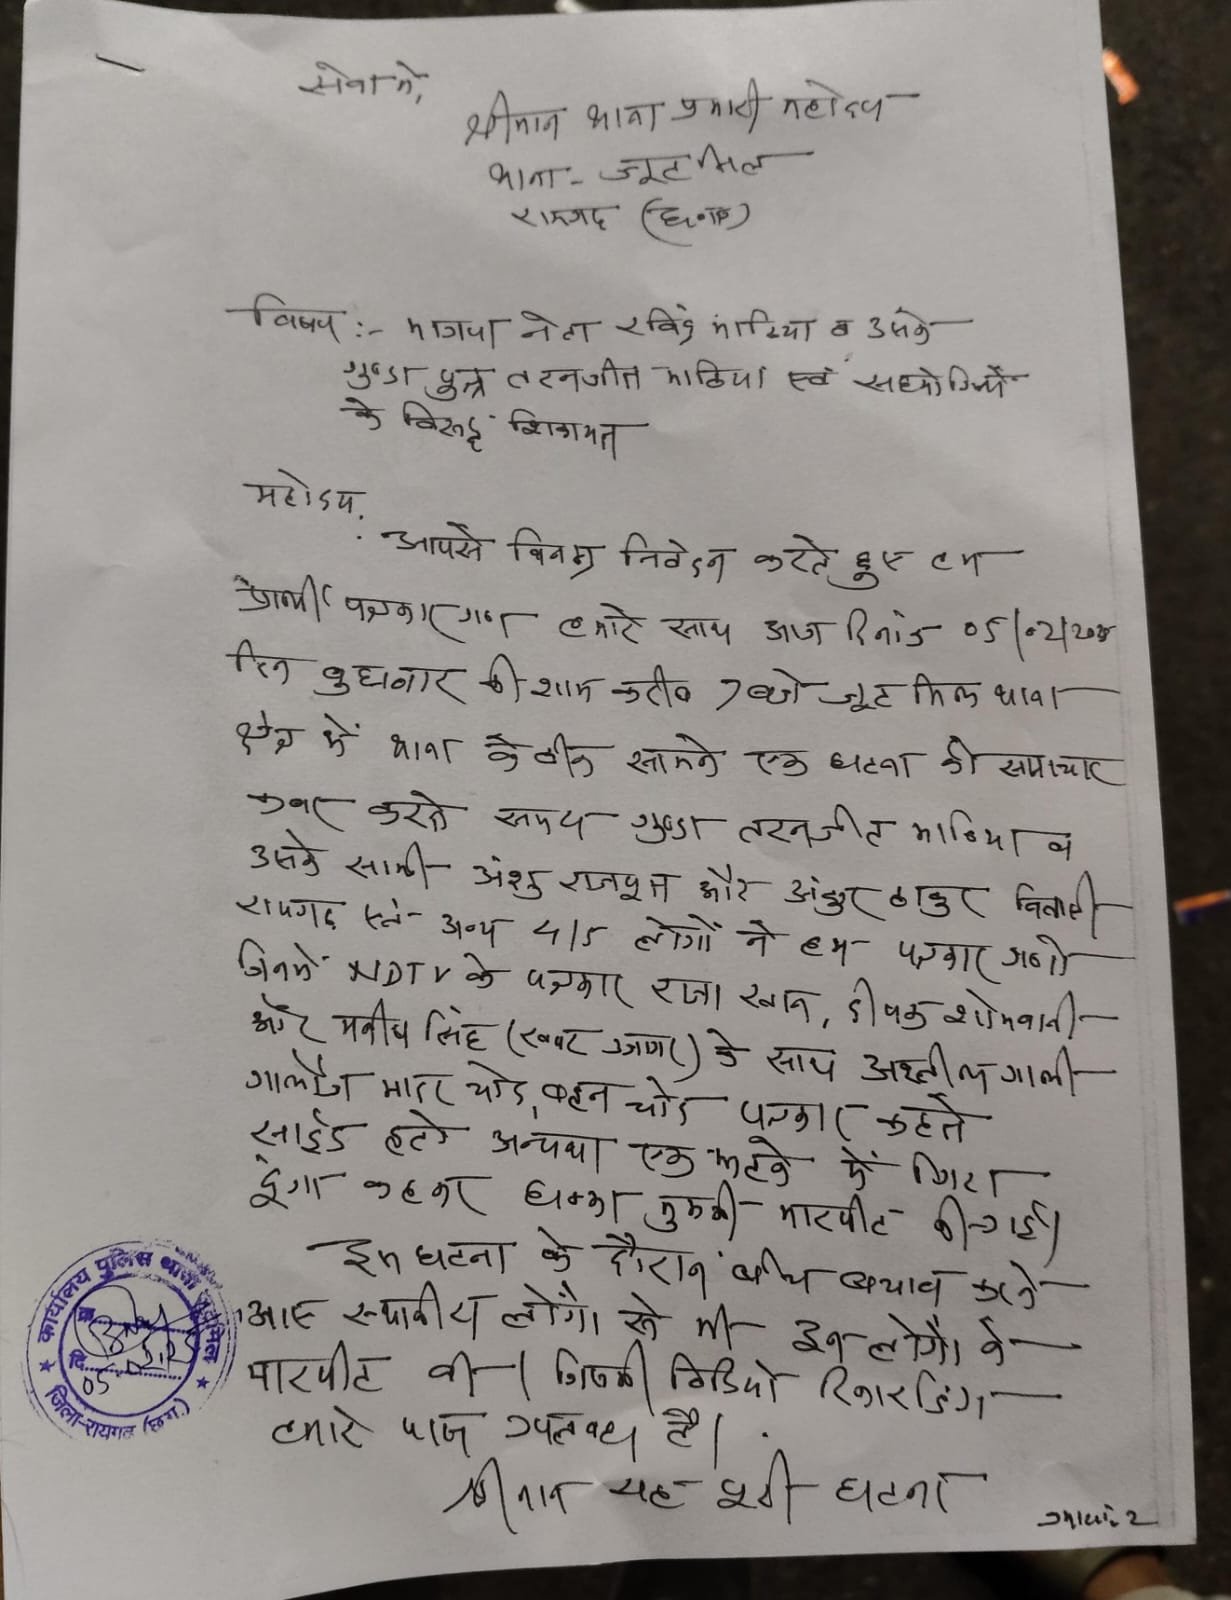 सेवा में,
श्रीमान थाना प्रभारी महोदय
थाना - जूटमिल
रायगढ़ (छ०ग०)
विषय :- भाजपा नेता रविंद्र भाटिया व उसके
गुण्डा पुत्र तरनजीत भाटिया एवं सहयोगियों
के विरूद्ध शिकायत
महोदय,
आपसे विनम्र निवेदन करते हुए हम
प्रार्थी पत्रकार गण हमारे साथ आज दिनांक 05/02/
दिन बुधवार की शाम करीब 7 बजे जूट मिल थाना
क्षेत्र में थाना के ठीक सामने एक घटना की समाचार
कवर करते समय गुण्डा तरनजीत भाटिया व
उसके साथी अंशु राजपूत और अंकुर ठाकुर निवासी
रायगढ़ एवं अन्य 4/5 लोगों ने हम पत्रकार गणों
जिनमें NDTV के पत्रकार राजा खान, दीपक शोभवानी
और मनीष सिंह (खबर उजागर) के साथ अश्लील गाली
गालौज मादर चोद, बहन चोद पत्रकार कहते
साईड हटो अन्यथा एक झटके में गिरा
दूंगा कहकर धक्का मुक्की मारपीट की गई।
इस घटना के दौरान बीच बचाव करने
आए स्थानीय लोगों से भी इन लोगों ने
मारपीट की। जिसकी विडियो रिकारडिंग
हमारे पास उपलब्ध है।
श्रीमान यह पूरी घटना
2
कार्यालय पुलिस थाना जूटमिल
क्र.
दि. 05
जिला-रायगढ़ (छ.ग.)